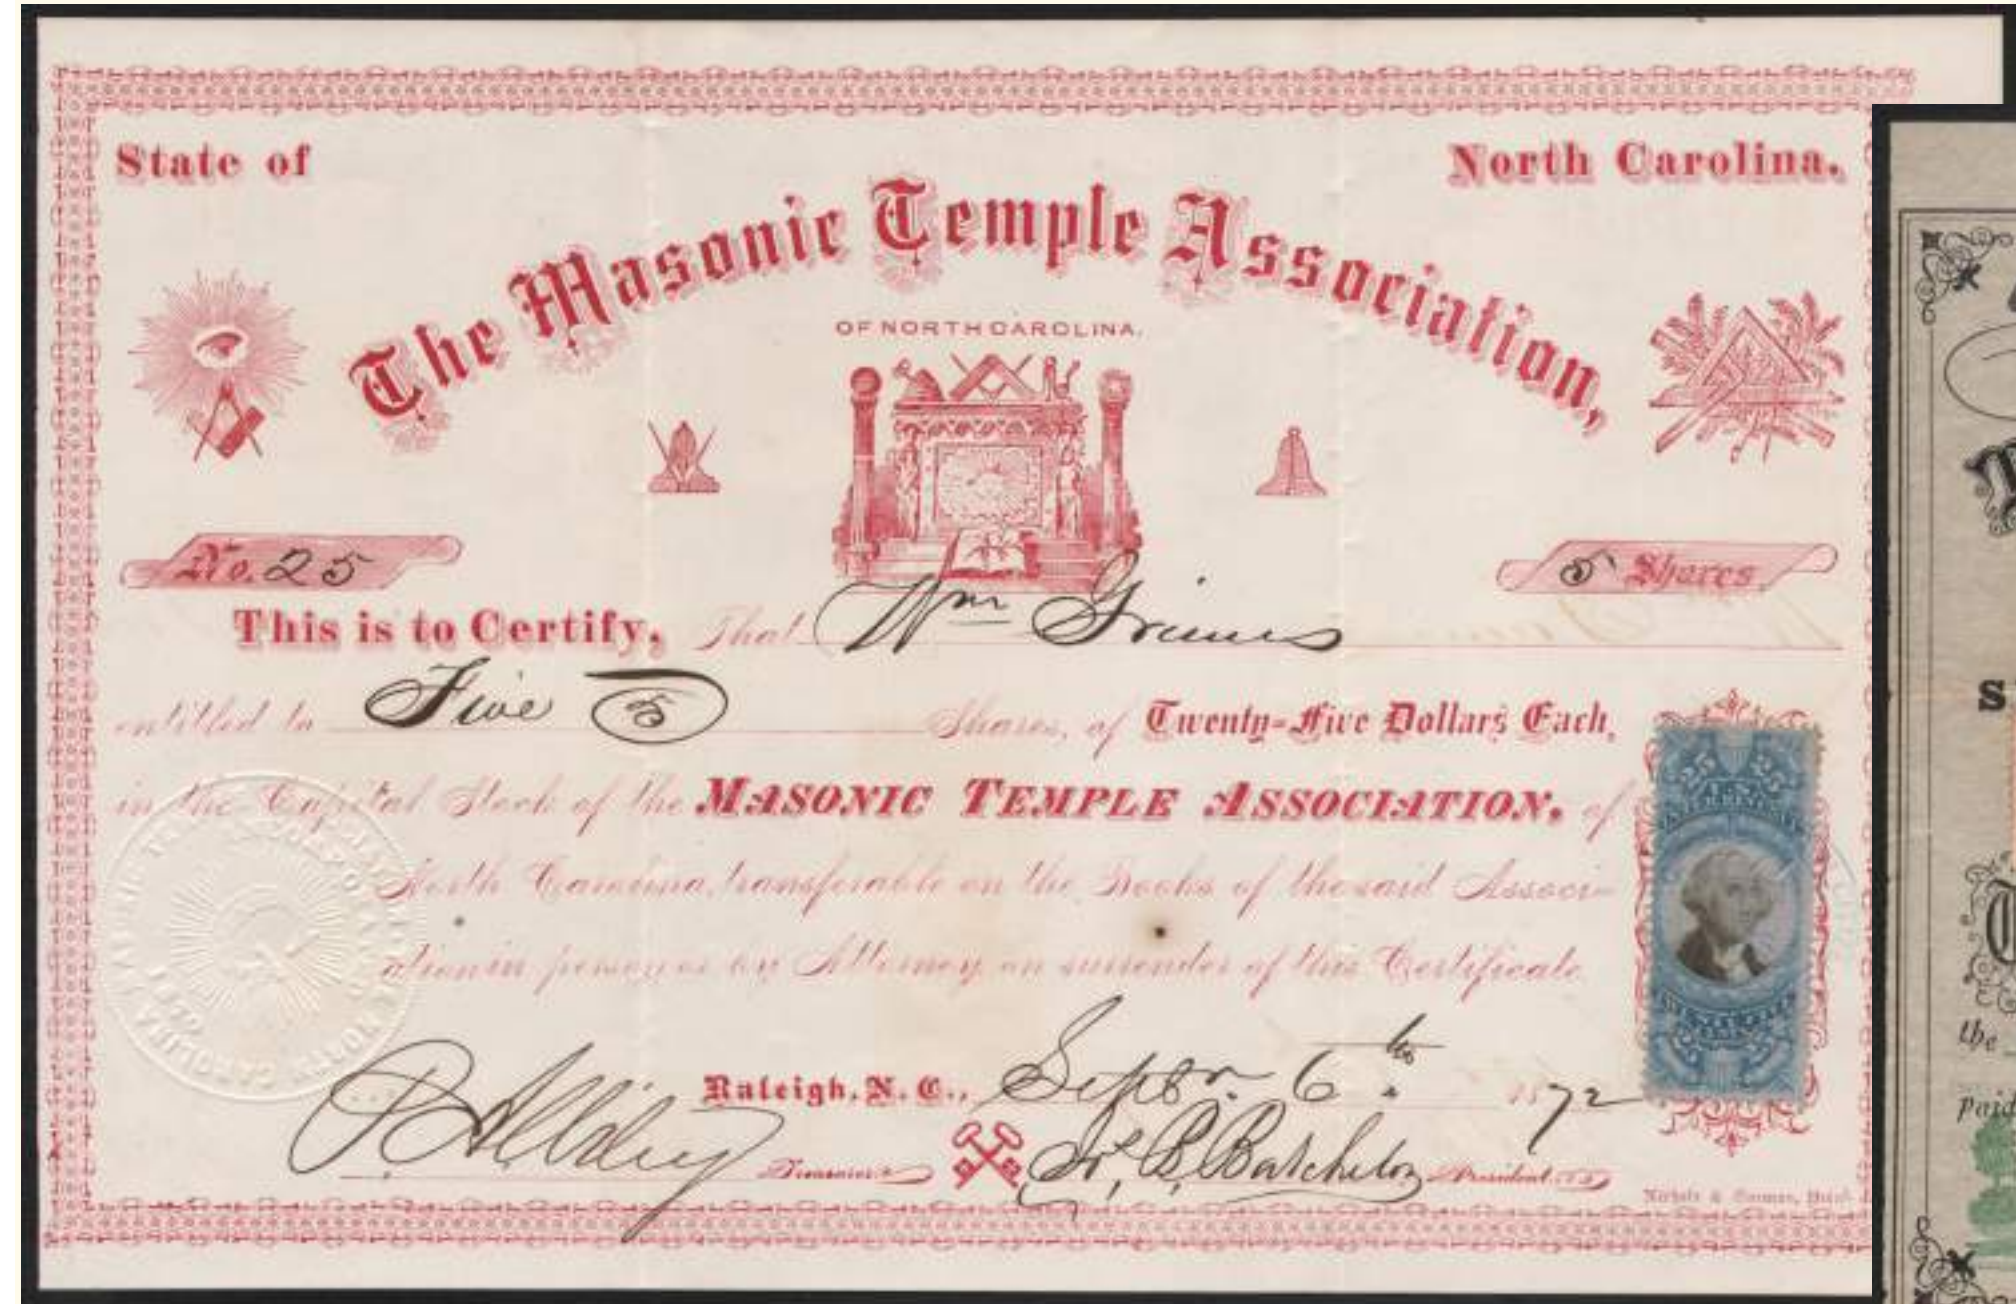 State of North Carolina.
The Masonic Temple Association,
OF NORTH CAROLINA.
No. 25
5 Shares
This is to Certify, That Wm Grimes
entitled to Five 5 Shares, of Twenty-Five Dollars Each,
in the Capital Stock of the MASONIC TEMPLE ASSOCIATION, of
North Carolina, transferable on the Books of the said Associ-
ation in person or by Attorney on surrender of this Certificate
25 25
U.S.
Raleigh, N. C., Septbr. 6th 1872
Treasurer
Jos. B. Batchelor President
NORTH CAROLINA
the
paid